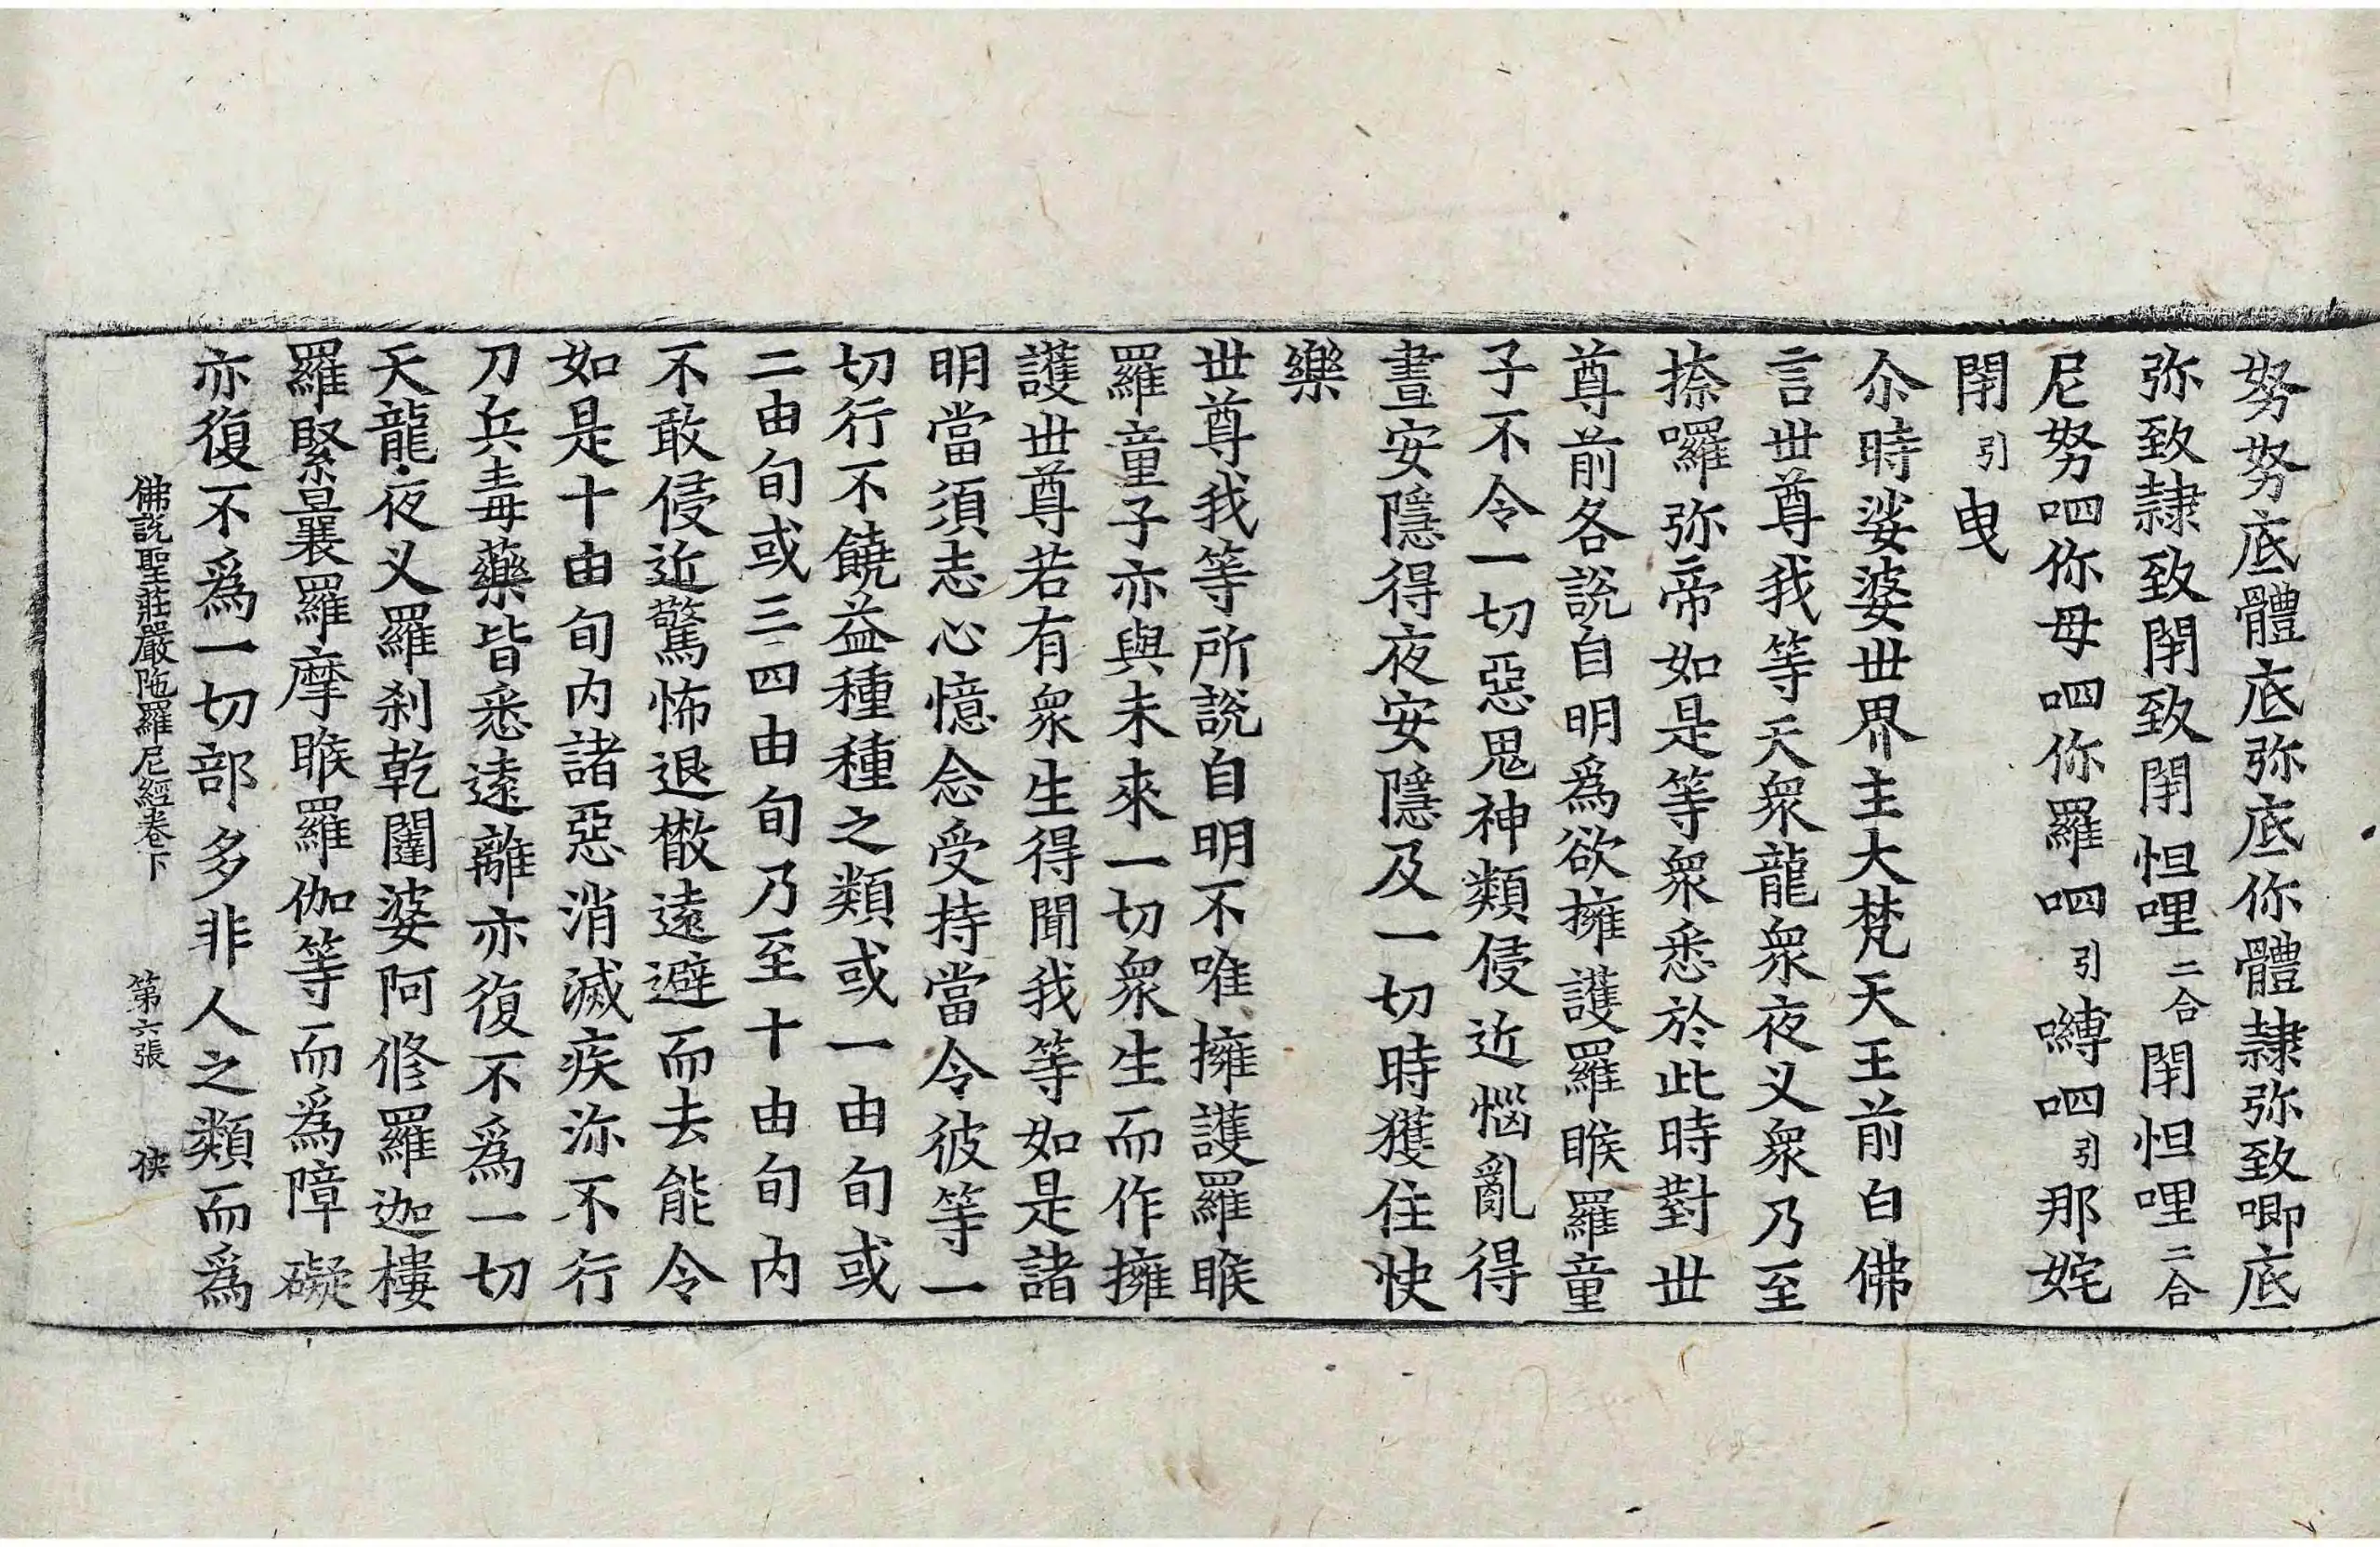 努努底體底弥底你體隷弥致唧底
弥致隷致閇致閇怛哩二合閇怛哩二合
尼努呬你毋呬你羅呬引嚩呬引那姹
閇引曳
尒時娑婆世界主大梵天王前白佛
言世尊我等天衆龍衆夜叉衆乃至
捺囉弥帝如是等衆悉於此時對世
尊前各說自明爲欲擁護羅睺羅童
子不令一切惡鬼神類侵近惱亂得
晝安隱得夜安隱及一切時獲住快
樂
世尊我等所說自明不唯擁護羅睺
羅童子亦與未來一切衆生而作擁
護世尊若有衆生得聞我等如是諸
明當須志心憶念受持當令彼等一
切行不饒益種種之類或一由旬或
二由旬或三四由旬乃至十由旬内
不敢侵近驚怖退散遠避而去能令
如是十由旬内諸惡消滅疾沴不行
刀兵毒藥皆悉遠離亦復不爲一切
天龍夜叉羅刹乾闥婆阿修羅迦樓
羅緊曩羅摩睺羅伽等而爲障礙
亦復不爲一切部多非人之類而爲
佛說聖莊嚴陁羅尼經卷下 第六張 俠